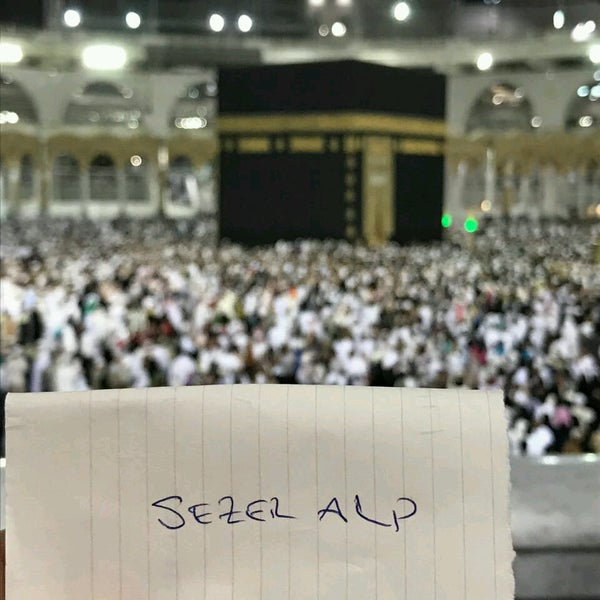 SEZER ALP